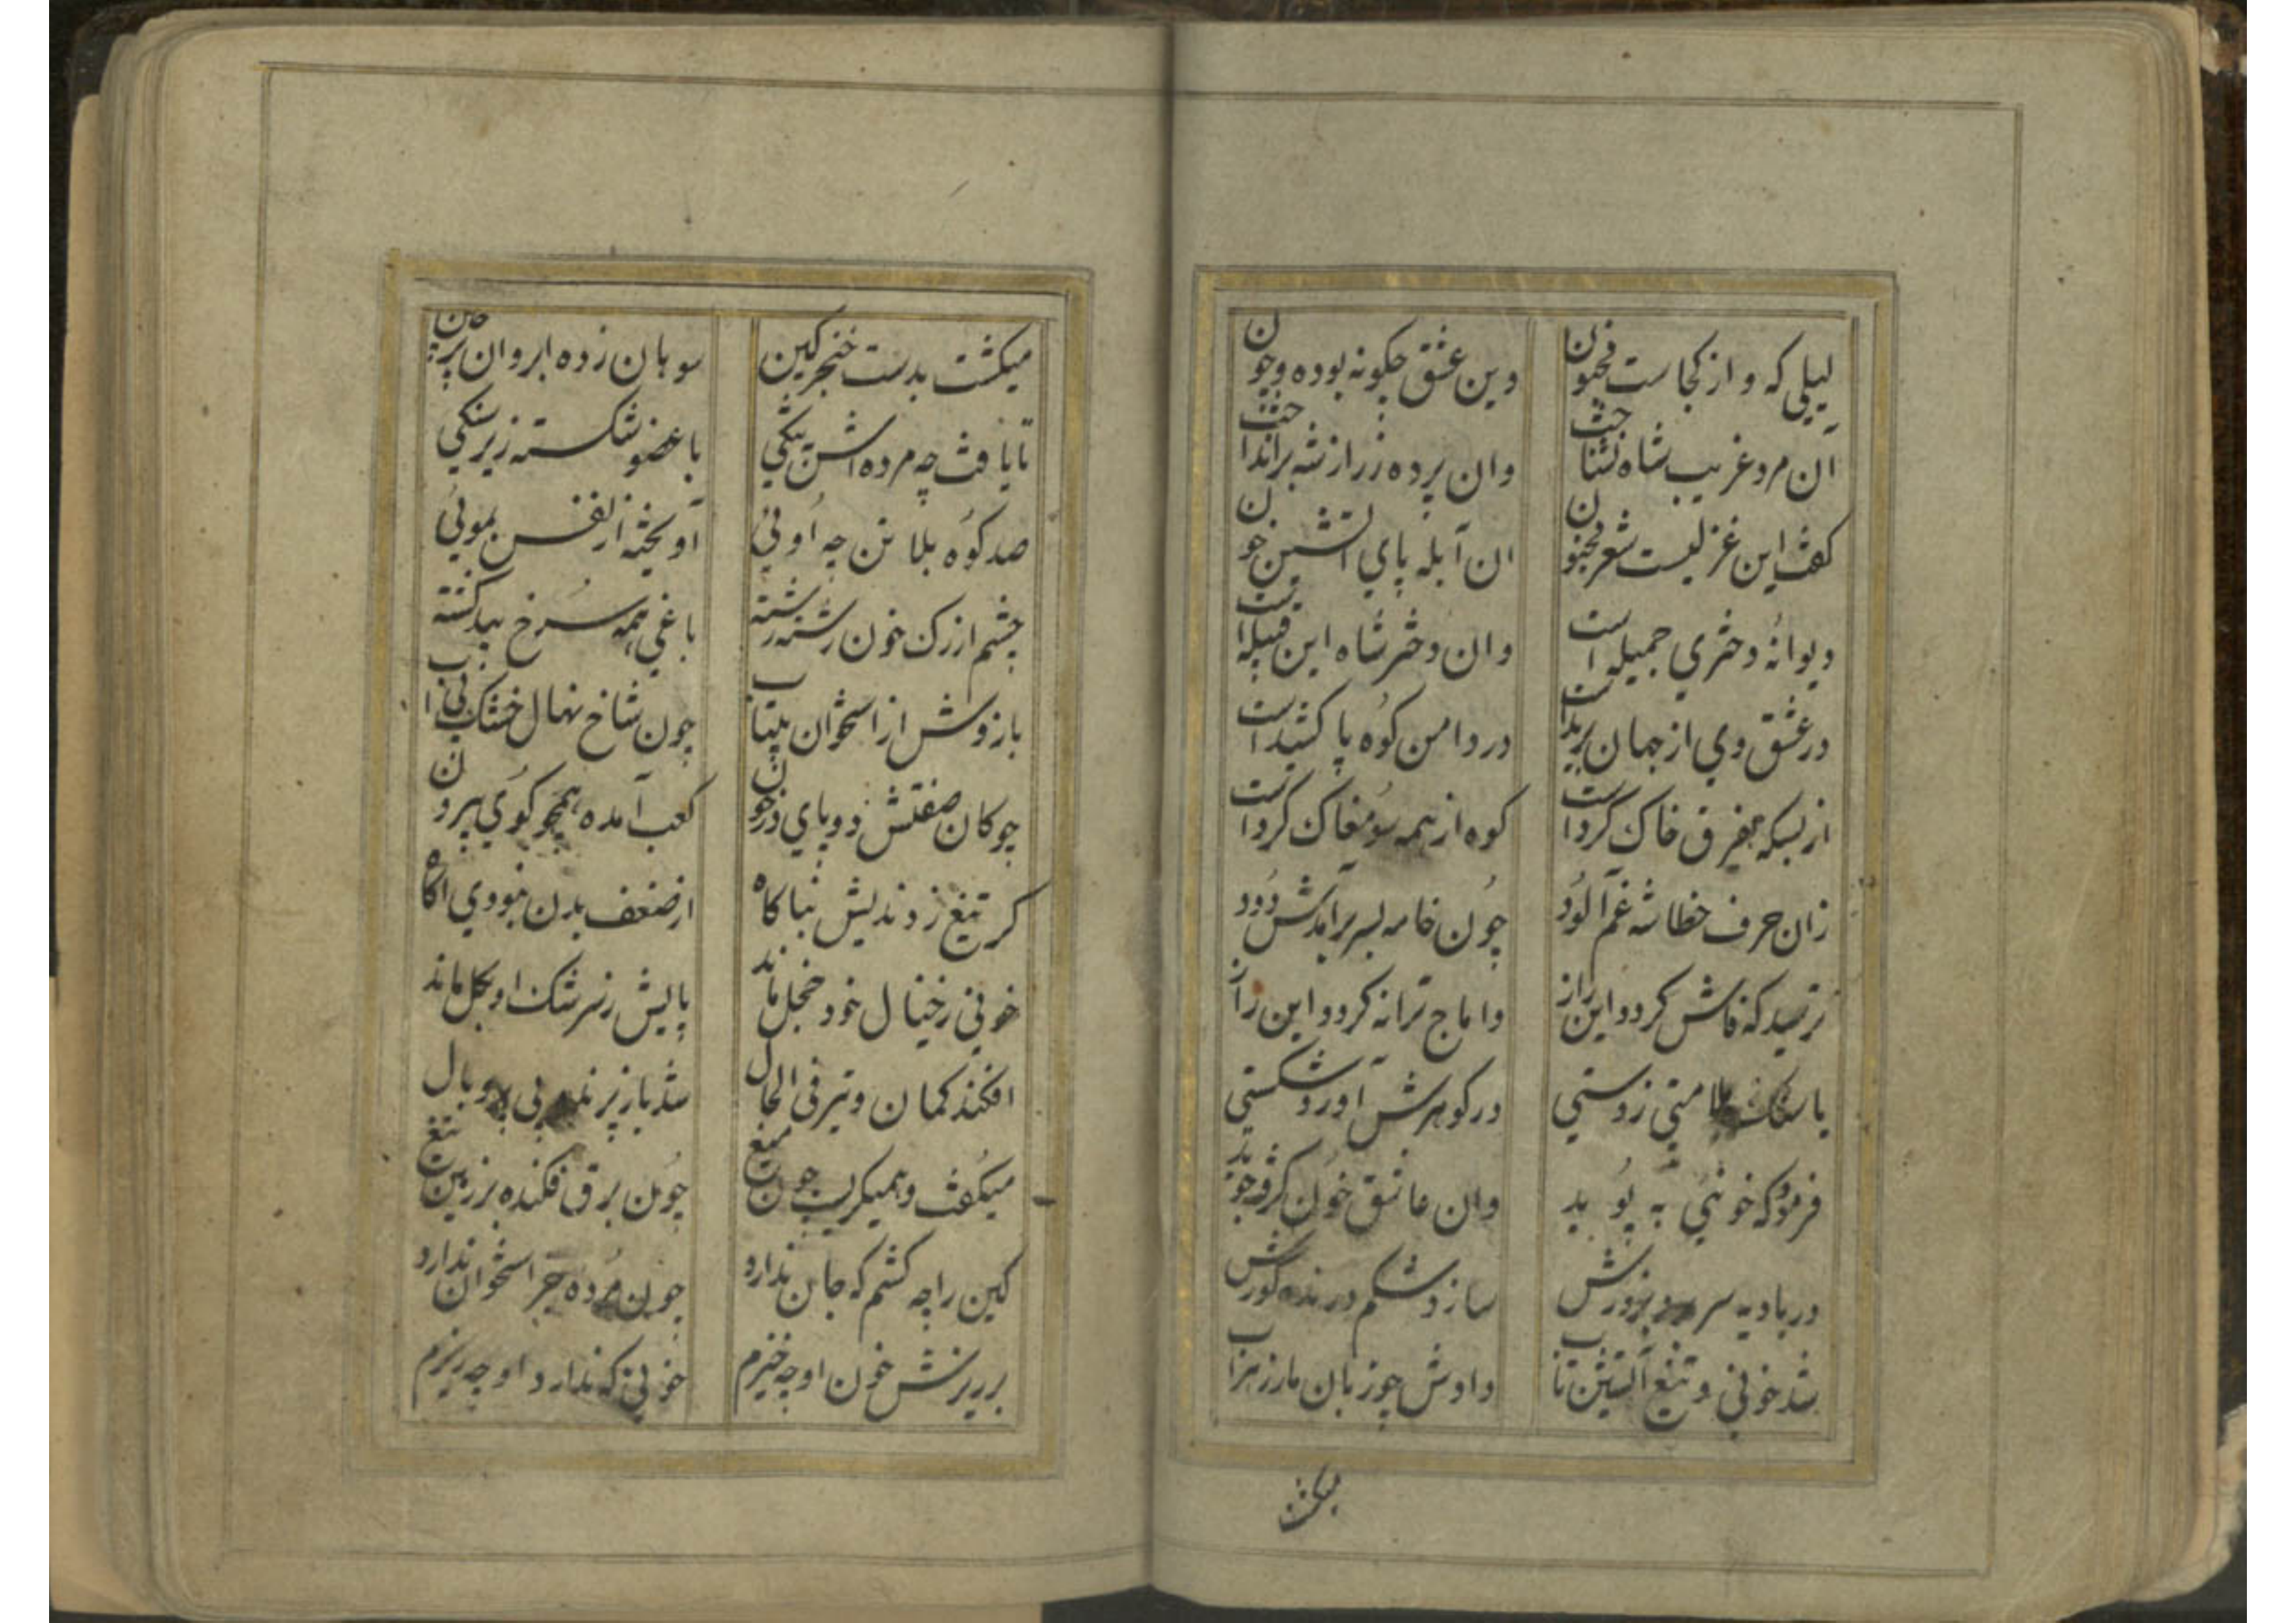 لیلی که و از کجاست مجنون وین عشق چگونه بوده و چون
آن مرد غریب شاه نشناخت وان پرده زر از شه برانداخت
گفت این غزلیست شعر مجنون ان آبله پای اتشین خون
دیوانهٔ دختری جمیله است وان دختر شاه این قبیله است
در عشق وی از جهان بریداست در دامن کوه پا کشیداست
از بسکه بفرق خاک کرداست کوه از همه سو مغاک کرداست
زان حرف خطا شه غم آلود چون خامه بسر برآمدش دود
ترسید که فاش کردد این راز واماج ترانه کردد این راز
با سنک ملامتی ز دستی در کوهرش آورد شکستی
فرمود که خونیی به پوید وان عاشق خون کرفته جوید
در بادیه سر برد بزورش سازد شکم درنده کورش
شد خونی و تیغ آتشین تاب دادش چو زبان مار زهراب
میکشت
میکشت بدست خنجر کین سوهان زده ابروان پرچین
تا یافت چه مرده اش بتنکی با عضو شکسته زیر سنکی
صد کوه بلا بتن چه اونی آویخته از نفس بمویی
چشم از رک خون رشته رشته باغی همه سرخ بید کشته
بازوش از استخوان بیتاب چون شاخ نهال خشک بی اب
چوکان صفتش دو پای در خون کعب آمده همچو کوی بیرون
کر تیغ زدندیش بناکاه از ضعف بدن نبودی اکاه
خونی ز خیال خود خجل ماند پایش ز سرشک او بکل ماند
افکند کمان و تیر فی الحال شد باز پرنده بی پر و بال
میکفت و همیکریست چون میغ چون برق فکنده بر زمین تیغ
کین را چه کشم که جان ندارد چون مرده جز استخوان ندارد
بر ریزش خون او چه خیزم خونی که ندارد او چه ریزم